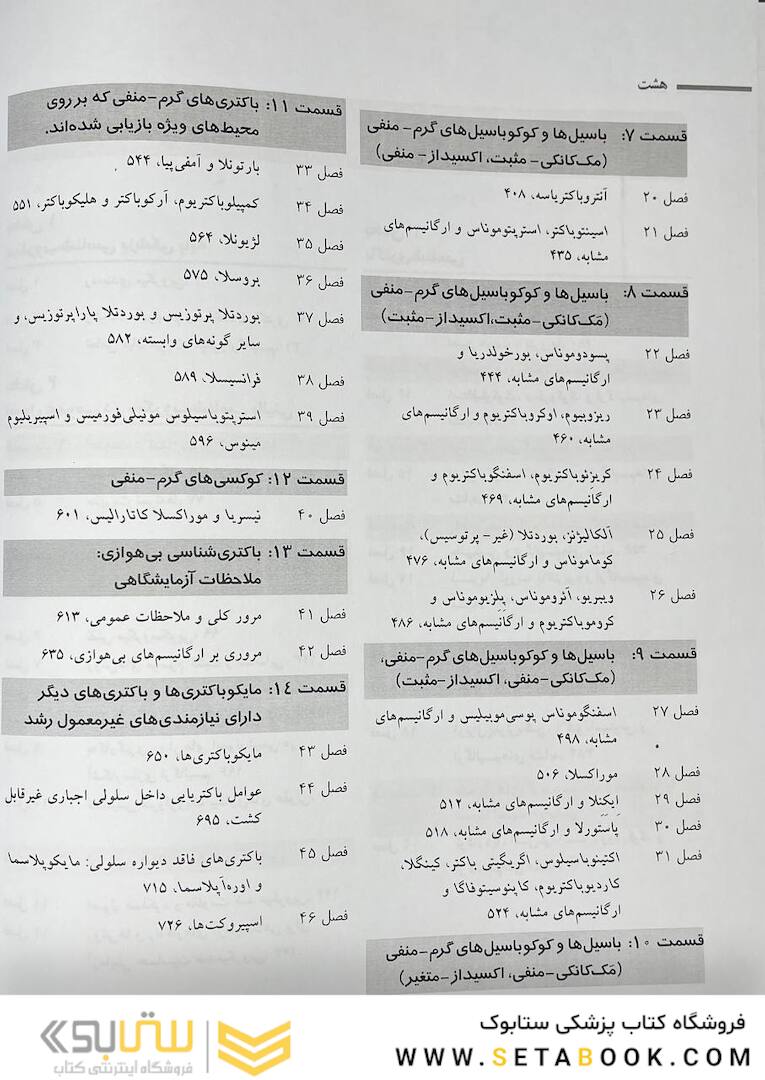 هشت
قسمت ۷: باسیل‌ها و کوکوباسیل‌های گرم-منفی
(مک‌کانکی-مثبت، اکسیداز-منفی)
فصل ۲۰ آنتروباکتریاسه، ۴۰۸
فصل ۲۱ اسینتوباکتر، استرپتوموناس و ارگانیسم‌های
مشابه، ۴۳۵
قسمت ۸: باسیل‌ها و کوکوباسیل‌های گرم-منفی
(مَک‌کانکی-مثبت،اکسیداز-مثبت)
فصل ۲۲ پسودوموناس، بورخولدریا و
ارگانیسم‌های مشابه، ۴۴۴
فصل ۲۳ ریزوبیوم، اوکروباکتریوم و ارگانیسم‌های
مشابه، ۴۶۰
فصل ۲۴ کریزئوباکتریوم، اسفنگوباکتریوم و
ارگانیسم‌های مشابه، ۴۶۹
فصل ۲۵ آلکالیژنز، بوردتلا (غیر-پرتوسیس)،
کوماموناس و ارگانیسم‌های مشابه، ۴۷۶
فصل ۲۶ ویبریو، آئروموناس، پِلِزیوموناس و
کروموباکتریوم و ارگانیسم‌های مشابه، ۴۸۶
قسمت ۹: باسیل‌ها و کوکوباسیل‌های گرم-منفی،
(مک‌کانکی-منفی، اکسیداز-مثبت)
فصل ۲۷ اسفنگوموناس پوسی‌موبیلیس و ارگانیسم‌های
مشابه، ۴۹۸
فصل ۲۸ موراکسلا، ۵۰۶
فصل ۲۹ اِیکِنِلا و ارگانیسم‌های مشابه، ۵۱۲
فصل ۳۰ پاستورلا و ارگانیسم‌های مشابه، ۵۱۸
فصل ۳۱ اکتینوباسیلوس، اگریگیتی باکتر، کینگلا،
کاردیوباکتریوم، کاپنوسیتوفاگا و
ارگانیسم‌های مشابه، ۵۲۴
قسمت ۱۰: باسیل‌ها و کوکوباسیل‌های گرم-منفی
(مَک‌کانکی-منفی، اکسیداز-متغیر)
قسمت ۱۱: باکتری‌های گرم-منفی که بر روی
محیط‌های ویژه بازیابی شده‌اند.
فصل ۳۳ بارتونلا و آمفی‌پیا، ۵۴۴
فصل ۳۴ کمپیلوباکتریوم، آرکوباکتر و هلیکوباکتر، ۵۵۱
فصل ۳۵ لژیونلا، ۵۶۴
فصل ۳۶ بروسلا، ۵۷۵
فصل ۳۷ بوردتلا پرتوزیس و بوردتلا پاراپرتوزیس، و
سایر گونه‌های وابسته، ۵۸۲
فصل ۳۸ فرانسیسلا، ۵۸۹
فصل ۳۹ استرپتوباسیلوس مونیلی‌فورمیس و اسپیریلیوم
مینوس، ۵۹۶
قسمت ۱۲: کوکسی‌های گرم-منفی
فصل ۴۰ نیسریا و موراکسلا کاتارالیس، ۶۰۱
قسمت ۱۳: باکتری‌شناسی بی‌هوازی:
ملاحظات آزمایشگاهی
فصل ۴۱ مرور کلی و ملاحظات عمومی، ۶۱۳
فصل ۴۲ مروری بر ارگانیسم‌های بی‌هوازی، ۶۳۵
قسمت ۱۴: مایکوباکتری‌ها و باکتری‌های دیگر
دارای نیازمندی‌های غیرمعمول رشد
فصل ۴۳ مایکوباکتری‌ها، ۶۵۰
فصل ۴۴ عوامل باکتریایی داخل سلولی اجباری غیرقابل
کشت، ۶۹۵
فصل ۴۵ باکتری‌های فاقد دیواره سلولی: مایکوپلاسما
و اوره‌آپلاسما، ۷۱۵
فصل ۴۶ اسپیروکت‌ها، ۷۲۶
فروشگاه کتاب پزشکی ستابوک
WWW.SETABOOK.COM
ستابوک
فروشگاه اینترنتی کتاب